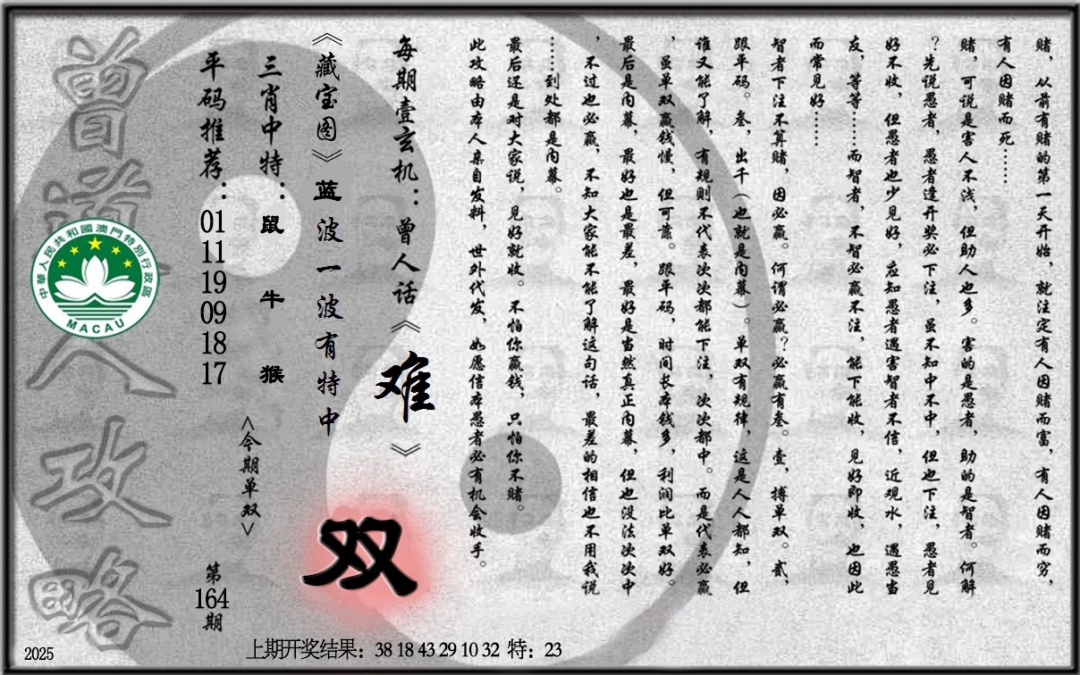 赌，从前有赌的第一天开始，就注定有人因赌而富，有人因赌而穷，
有人因赌而死……
赌，可说是害人不浅，但助人也多。害的是愚者，助的是智者。何解
？先说愚者，愚者逢开奖必下注，虽不知中不中，但也下注，愚者见
好不收，但愚者也少见好，应知愚者遇害智者不信，近观水，遇愚当
友，等等……而智者，不智必赢不注，能下能收，见好即收，也因此
而常见好……
智者下注不算赌，因必赢。何谓必赢？必赢有叁。壹，搏单双。贰，
跟平码。叁，出千（也就是内幕）。单双有规律，这是人人都知，但
谁又能了解，有规则不代表次次都能下注，次次都中。而是代表必赢
，虽单双赢钱慢，但可靠。跟平码，时间长本钱多，利润比单双好。
最后是内幕，最好也是最差，最好是当然真正内幕，但也没法次次中
，不过也必赢，不知大家能不能了解这句话，最差的相信也不用我说
……到处都是内幕。
最后还是对大家说，见好就收。不怕你赢钱，只怕你不赌。
此攻略由本人亲自发料，世外代发，如愿信本愚者必有机会收手。
每期壹玄机：曾人话《难》
《藏宝图》蓝波一波有特中
三肖中特：鼠 牛 猴
平码推荐：01 11 19 09 18 17
<今期单双>
双
第164期
曾道人攻略
中華人民共和國澳門特別行政區
MACAU
2025
上期开奖结果：38 18 43 29 10 32 特：23